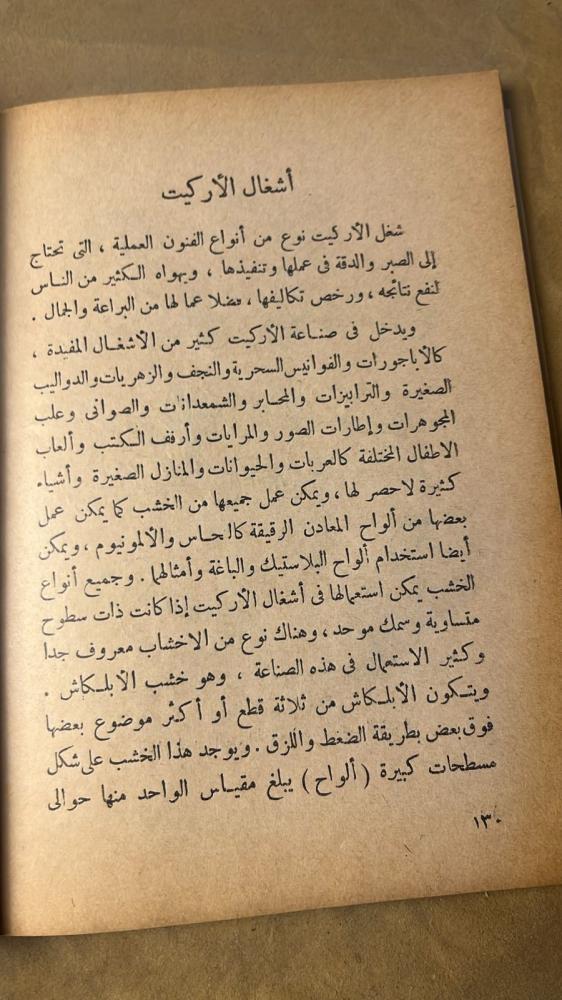 أشغال الأركيت
شغل الأركيت نوع من أنواع الفنون العملية ، التى تحتاج
إلى الصبر والدقة فى عملها وتنفيذها ، ويهواه الكثير من الناس
لنفع نتائجه ، ورخص تكاليفها ، فضلا عما لها من البراعة والجمال .
ويدخل فى صناعة الأركيت كثير من الأشغال المفيدة ،
كالأباجورات والفوانيس السحرية والنجف والزهريات والدواليب
الصغيرة والترابيزات والمحابر والشمعدانات والصوانى وعلب
المجوهرات وإطارات الصور والمرايات وأرفف الكتب وألعاب
الاطفال المختلفة كالعربات والحيوانات والمنازل الصغيرة وأشياء
كثيرة لاحصر لها ، ويمكن عمل جميعها من الخشب كما يمكن عمل
بعضها من ألواح المعادن الرقيقة كالنحاس والألومونيوم ، ويمكن
أيضا استخدام ألواح البلاستيك والباغة وأمثالهما . وجميع أنواع
الخشب يمكن استعمالها فى أشغال الأركيت إذا كانت ذات سطوح
متساوية وسمك موحد ، وهناك نوع من الاخشاب معروف جدا
وكثير الاستعمال فى هذه الصناعة ، وهو خشب الأبلكاش .
ويتكون الأبلكاش من ثلاثة قطع أو أكثر موضوع بعضها
فوق بعض بطريقة الضغط واللزق . ويوجد هذا الخشب على شكل
مسطحات كبيرة ( ألواح ) يبلغ مقياس الواحد منها حوالى
١٣٠